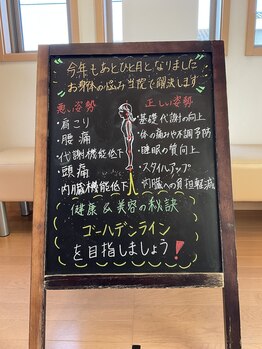 今年もあとひと月となりました
お身体の悩み当院で解決します
悪い姿勢
・肩こり
・腰痛
・代謝機能低下
・頭痛
・内臓機能低下
正しい姿勢
・基礎代謝の向上
・体の痛みや不調予防
・睡眠の質向上
・スタイルアップ
・内臓への負担軽減
健康&美容の秘訣
ゴールデンライン
を目指しましょう!